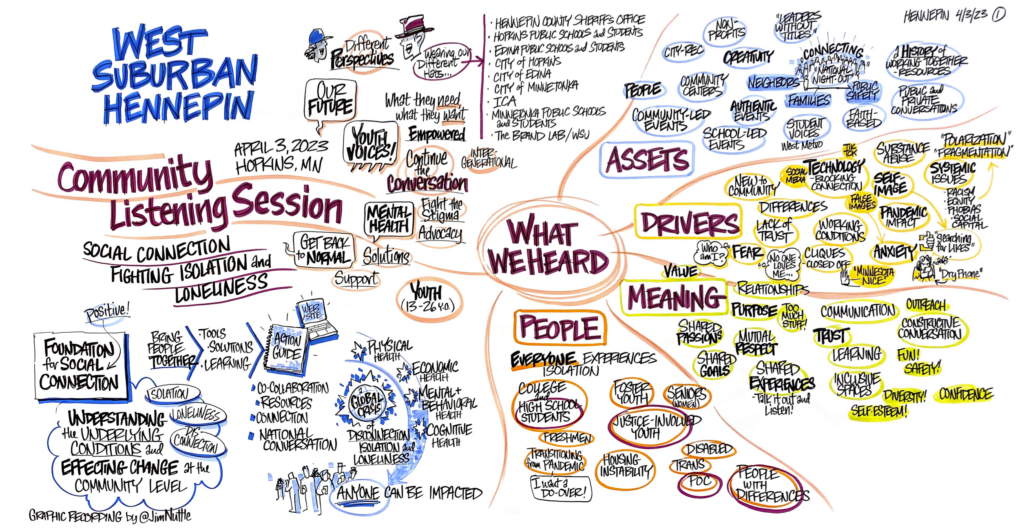 HENNEPIN 4/3/23 1
WEST
SUBURBAN
HENNEPIN
APRIL 3, 2023
HOPKINS, MN
Community
Listening Session
SOCIAL CONNECTION
FIGHTING ISOLATION and
LONELINESS
Different
Perspectives
Wearing our
Different
Hats...
• HENNEPIN COUNTY SHERIFF'S OFFICE
• HOPKINS PUBLIC SCHOOLS and STUDENTS
• EDINA PUBLIC SCHOOLS and STUDENTS
• CITY OF HOPKINS
• CITY OF EDINA
• CITY OF MINNETONKA
• ICA
• MINNETONKA PUBLIC SCHOOLS
and STUDENTS
• THE BRAND LAB/WSU
OUR
FUTURE
What they need,
what they want
YOUTH
VOICES!
Empowered
Continue
the
Conversation
INTER-
GENERATIONAL
MENTAL
HEALTH
Fight the
Stigma
Advocacy
GET BACK
to NORMAL
Solutions
Support
YOUTH
(13-26 y.o.)
WHAT
WE HEARD
ASSETS
NON-
PROFITS
"LEADERS
WITHOUT
TITLES"
CITY-REC
CREATIVITY
CONNECTING
"NATIONAL
NIGHT OUT"
a HISTORY of
WORKING TOGETHER
- RESOURCES
PEOPLE
COMMUNITY
CENTERS
NEIGHBORS
PUBLIC
SAFETY
PUBLIC and
PRIVATE
CONVERSATIONS
COMMUNITY-LED
EVENTS
AUTHENTIC
EVENTS
FAMILIES
FAITH-
BASED
SCHOOL-LED
EVENTS
STUDENT
VOICES
West Metro
DRIVERS
TIK
TOK
SOCIAL
MEDIA
TECHNOLOGY
- BLOCKING
CONNECTION
SUBSTANCE
ABUSE
"POLARIZATION"
"FRAGMENTATION"
SYSTEMIC
ISSUES
RACISM
EQUITY
PHOBIAS
SOCIAL
CAPITAL
NEW to
COMMUNITY
SELF-
IMAGE
FALSE
IMAGES
DIFFERENCES
PANDEMIC
IMPACT
LACK of
TRUST
WORKING
CONDITIONS
Who
am I?
FEAR
NO ONE
LOVES
ME...
CLIQUES
- CLOSED OFF
ANXIETY
"Searching
for likes"
"MINNESOTA
NICE"
"Dry Phone"
VALUE
MEANING
RELATIONSHIPS
PURPOSE
TOO
MUCH
STUFF!
COMMUNICATION
OUTREACH
SHARED
PASSIONS
MUTUAL
RESPECT
TRUST
CONSTRUCTIVE
CONVERSATION
SHARED
GOALS
LEARNING
FUN!
SAFETY!
SHARED
EXPERIENCES
- Talk it out and
Listen!
INCLUSIVE
SPACES
DIVERSITY!
CONFIDENCE
SELF ESTEEM!
PEOPLE
EVERYONE EXPERIENCES
ISOLATION
COLLEGE
and
HIGH SCHOOL
STUDENTS
FOSTER
YOUTH
SENIORS
(WOMEN)
JUSTICE-INVOLVED
YOUTH
FRESHMEN
DISABLED
TRANSITIONING
from PANDEMIC
HOUSING
INSTABILITY
TRANS
POC
PEOPLE
WITH
DIFFERENCES
I want a
DO-OVER!
Positive!
FOUNDATION
for SOCIAL
CONNECTION
BRING
PEOPLE
TOGETHER
• TOOLS
• SOLUTIONS
• LEARNING
ACTION
GUIDE
WEB
SITE
ISOLATION
LONELINESS
DIS-
CONNECTION
UNDERSTANDING
the UNDERLYING
CONDITIONS and
EFFECTING CHANGE at the
COMMUNITY LEVEL
• CO-COLLABORATION
• RESOURCES
• CONNECTION
• NATIONAL
CONVERSATION
GLOBAL
CRISIS
of
DISCONNECTION
ISOLATION and
LONELINESS
PHYSICAL
HEALTH
ECONOMIC
HEALTH
MENTAL+
BEHAVIORAL
HEALTH
COGNITIVE
HEALTH
ANYONE CAN BE IMPACTED
GRAPHIC RECORDING by @JimNuttle